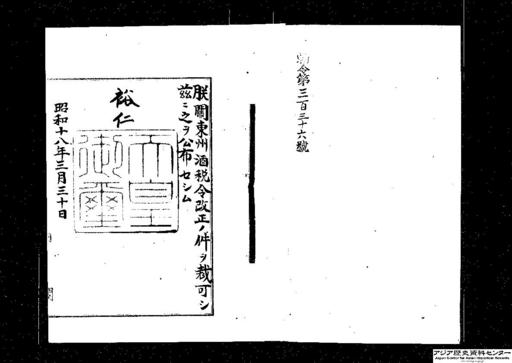 勅令第三百三十六號
朕關東州酒税令改正ノ件ヲ裁可シ
茲ニ之ヲ公布セシム
裕仁
天皇御璽
昭和十八年三月三十日
アジア歴史資料センター
Japan Center for Asian Historical Records